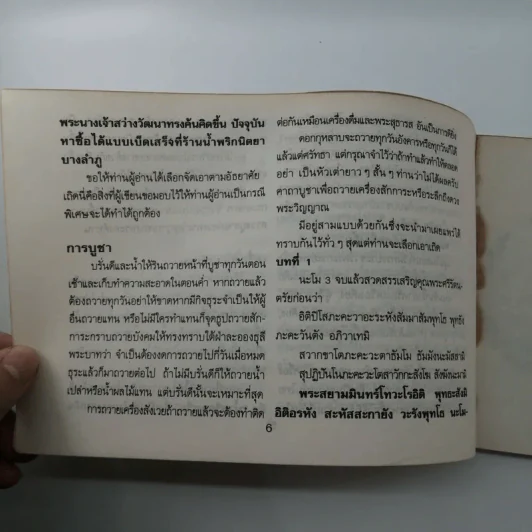 พระนางเจ้าสว่างวัฒนาทรงค้นคิดขึ้น ปัจจุบัน
หาซื้อได้แบบเบ็ดเสร็จที่ร้านน้ำพริกนิตยา
บางลำภู
ขอให้ท่านผู้อ่านได้เลือกจัดเอาตามอัธยาศัย
เถิดนี่คือสิ่งที่ผู้เขียนขอมอบไว้ให้ท่านผู้อ่านเป็นกรณี
พิเศษจะได้ทำได้ถูกต้อง
การบูชา
บรั่นดีและน้ำให้รินถวายหน้าที่บูชาทุกวันตอน
เช้าและเก็บทำความสะอาดในตอนค่ำ หากถวายแล้ว
ต้องถวายทุกวันอย่าให้ขาดหากมีกิจธุระจำเป็นให้ผู้
อื่นถวายแทน หรือไม่มีใครทำแทนก็จุดธูปถวายสัก-
การะกราบถวายบังคมให้ทรงทราบใต้ฝ่าละอองธุลี
พระบาทว่า จำเป็นต้องงดการถวายไปกี่วันเมื่อหมด
ธุระแล้วก็มาถวายต่อไป ถ้าไม่มีบรั่นดีก็ให้ถวายน้ำ
เปล่าหรือน้ำผลไม้แทน แต่บรั่นดีนั้นจะเหมาะที่สุด
การถวายเครื่องสังเวยถ้าถวายแล้วจะต้องทำติด
ต่อกันเหมือนเครื่องดื่มและพระสุธารส อันเป็นการดียิ่ง
ดอกกุหลาบจะถวายทุกวันอังคารหรือทุกวันก็ได้
แล้วแต่ศรัทธา แต่กรุณาจำไว้ว่าถ้าทำแล้วทำให้ตลอด
อย่า เป็นหัวเต่ายาว ๆ สั้น ๆ ท่านว่าไม่ได้ผลครับ
คาถาบูชาเพื่อถวายเครื่องสักการะหรือระลึกถึงดวง
พระวิญญาณ
มีอยู่สามแบบด้วยกันซึ่งจะนำมาเผยแพร่ให้
ทราบกันไว้ทั่ว ๆ สุดแต่ท่านจะเลือกเอาเถิด
บทที่ 1
นะโม 3 จบแล้วสวดสรรเสริญคุณพระศรีรัตน
ตรัยก่อนว่า
อิติปิโสภะคะวาอะระหังสัมมาสัมพุทโธ พุทธัง
ภะคะวันตัง อภิวาเทมิ
สวากขาโตภะคะวะตาธัมโม ธัมมังนะมัสสามิ
สุปฏิปันโนภะคะวะโตสาวักกะสังโฆ สังฆังนะมามิ
พระสยามมินทร์โทวะโรอิติ พุทธะสังมิ
อิติอรหัง สะหัสสะกายัง วะรังพุทโธ นะโม-
6